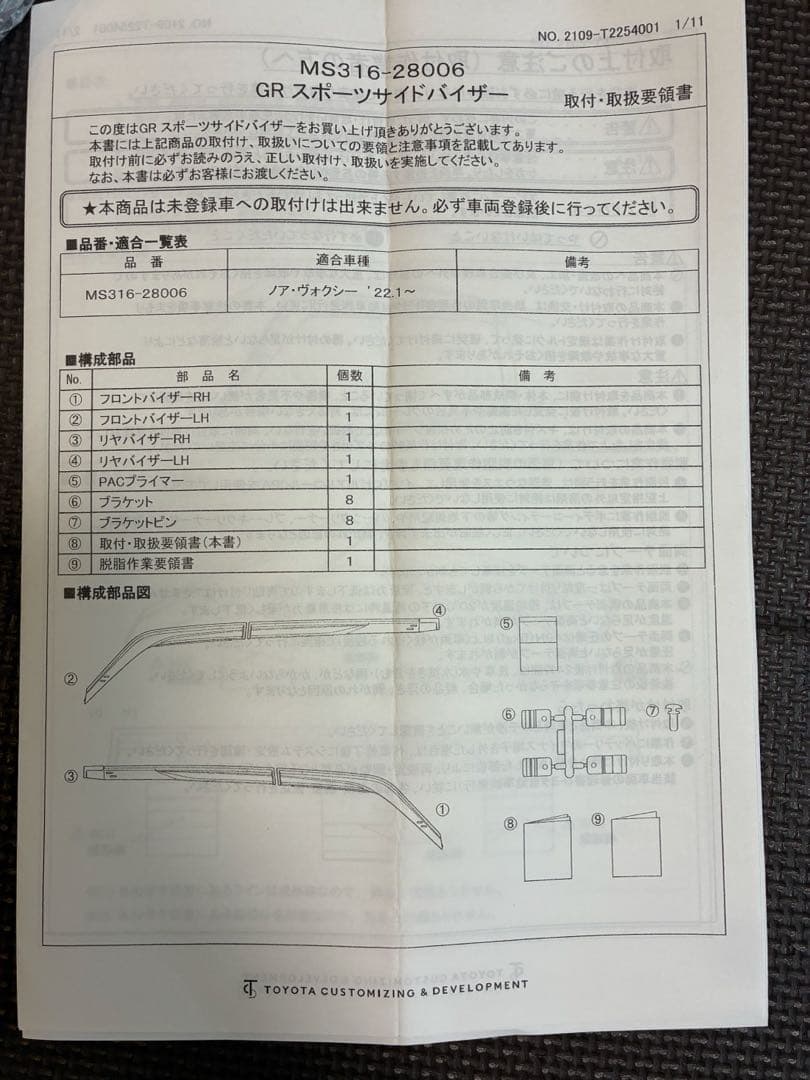 NO. 2109-T2254001 1/11
MS316-28006
GR スポーツサイドバイザー
取付・取扱要領書
この度はGR スポーツサイドバイザーをお買い上げ頂きありがとうございます。
本書には上記商品の取付け、取扱いについての要領と注意事項を記載してあります。
取付け前に必ずお読みのうえ、正しい取付け、取扱いを実施してください。
なお、本書は必ずお客様にお渡しください。
★本商品は未登録車への取付けは出来ません。必ず車両登録後に行ってください。
■品番・適合一覧表
品 番 適合車種 備考
MS316-28006 ノア・ヴォクシー ’22.1～
■構成部品
No. 部 品 名 個数 備 考
① フロントバイザーRH 1
② フロントバイザーLH 1
③ リヤバイザーRH 1
④ リヤバイザーLH 1
⑤ PACプライマー 1
⑥ ブラケット 8
⑦ ブラケットピン 8
⑧ 取付・取扱要領書（本書） 1
⑨ 脱脂作業要領書 1
■構成部品図
④
⑤
②
⑥
⑦
③
①
⑧
⑨
TOYOTA CUSTOMIZING & DEVELOPMENT